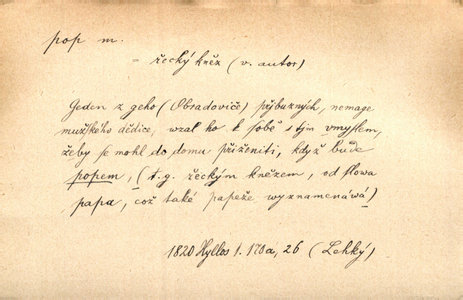 pop m.
= řecký kněz (v. autor)
Geden z geho (Obradovičě) přjbuzných, nemage
mužského dědice, wzal ho k sobě s tjm vmyslem,
žeby se mohl do domu přiženiti, když bude
popem, (t. g. řeckým knězem, od slowa
papa, což také papeže wyznamenáwá)
1820 Hyllos 1. 170a, 26 (Lehký)